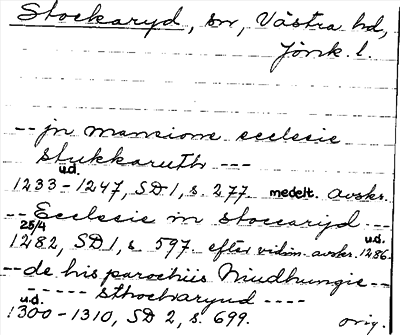 Stockaryd, sn, Västra hd,
Jönk. l.
-- jn mansione ecclesie
stukkaruth ---
u.d.
1233-1247, SD 1, s. 277. medelt. avskr.
-- Ecclesie in stoccaryd ---
25/4 u.d.
1282, SD 1, s. 597. efter vidim. avskr. 1286.
-- de his parochiis Niudhungie --
----- sthochæryud ----
u.d.
1300-1310, SD 2, s. 699. orig.